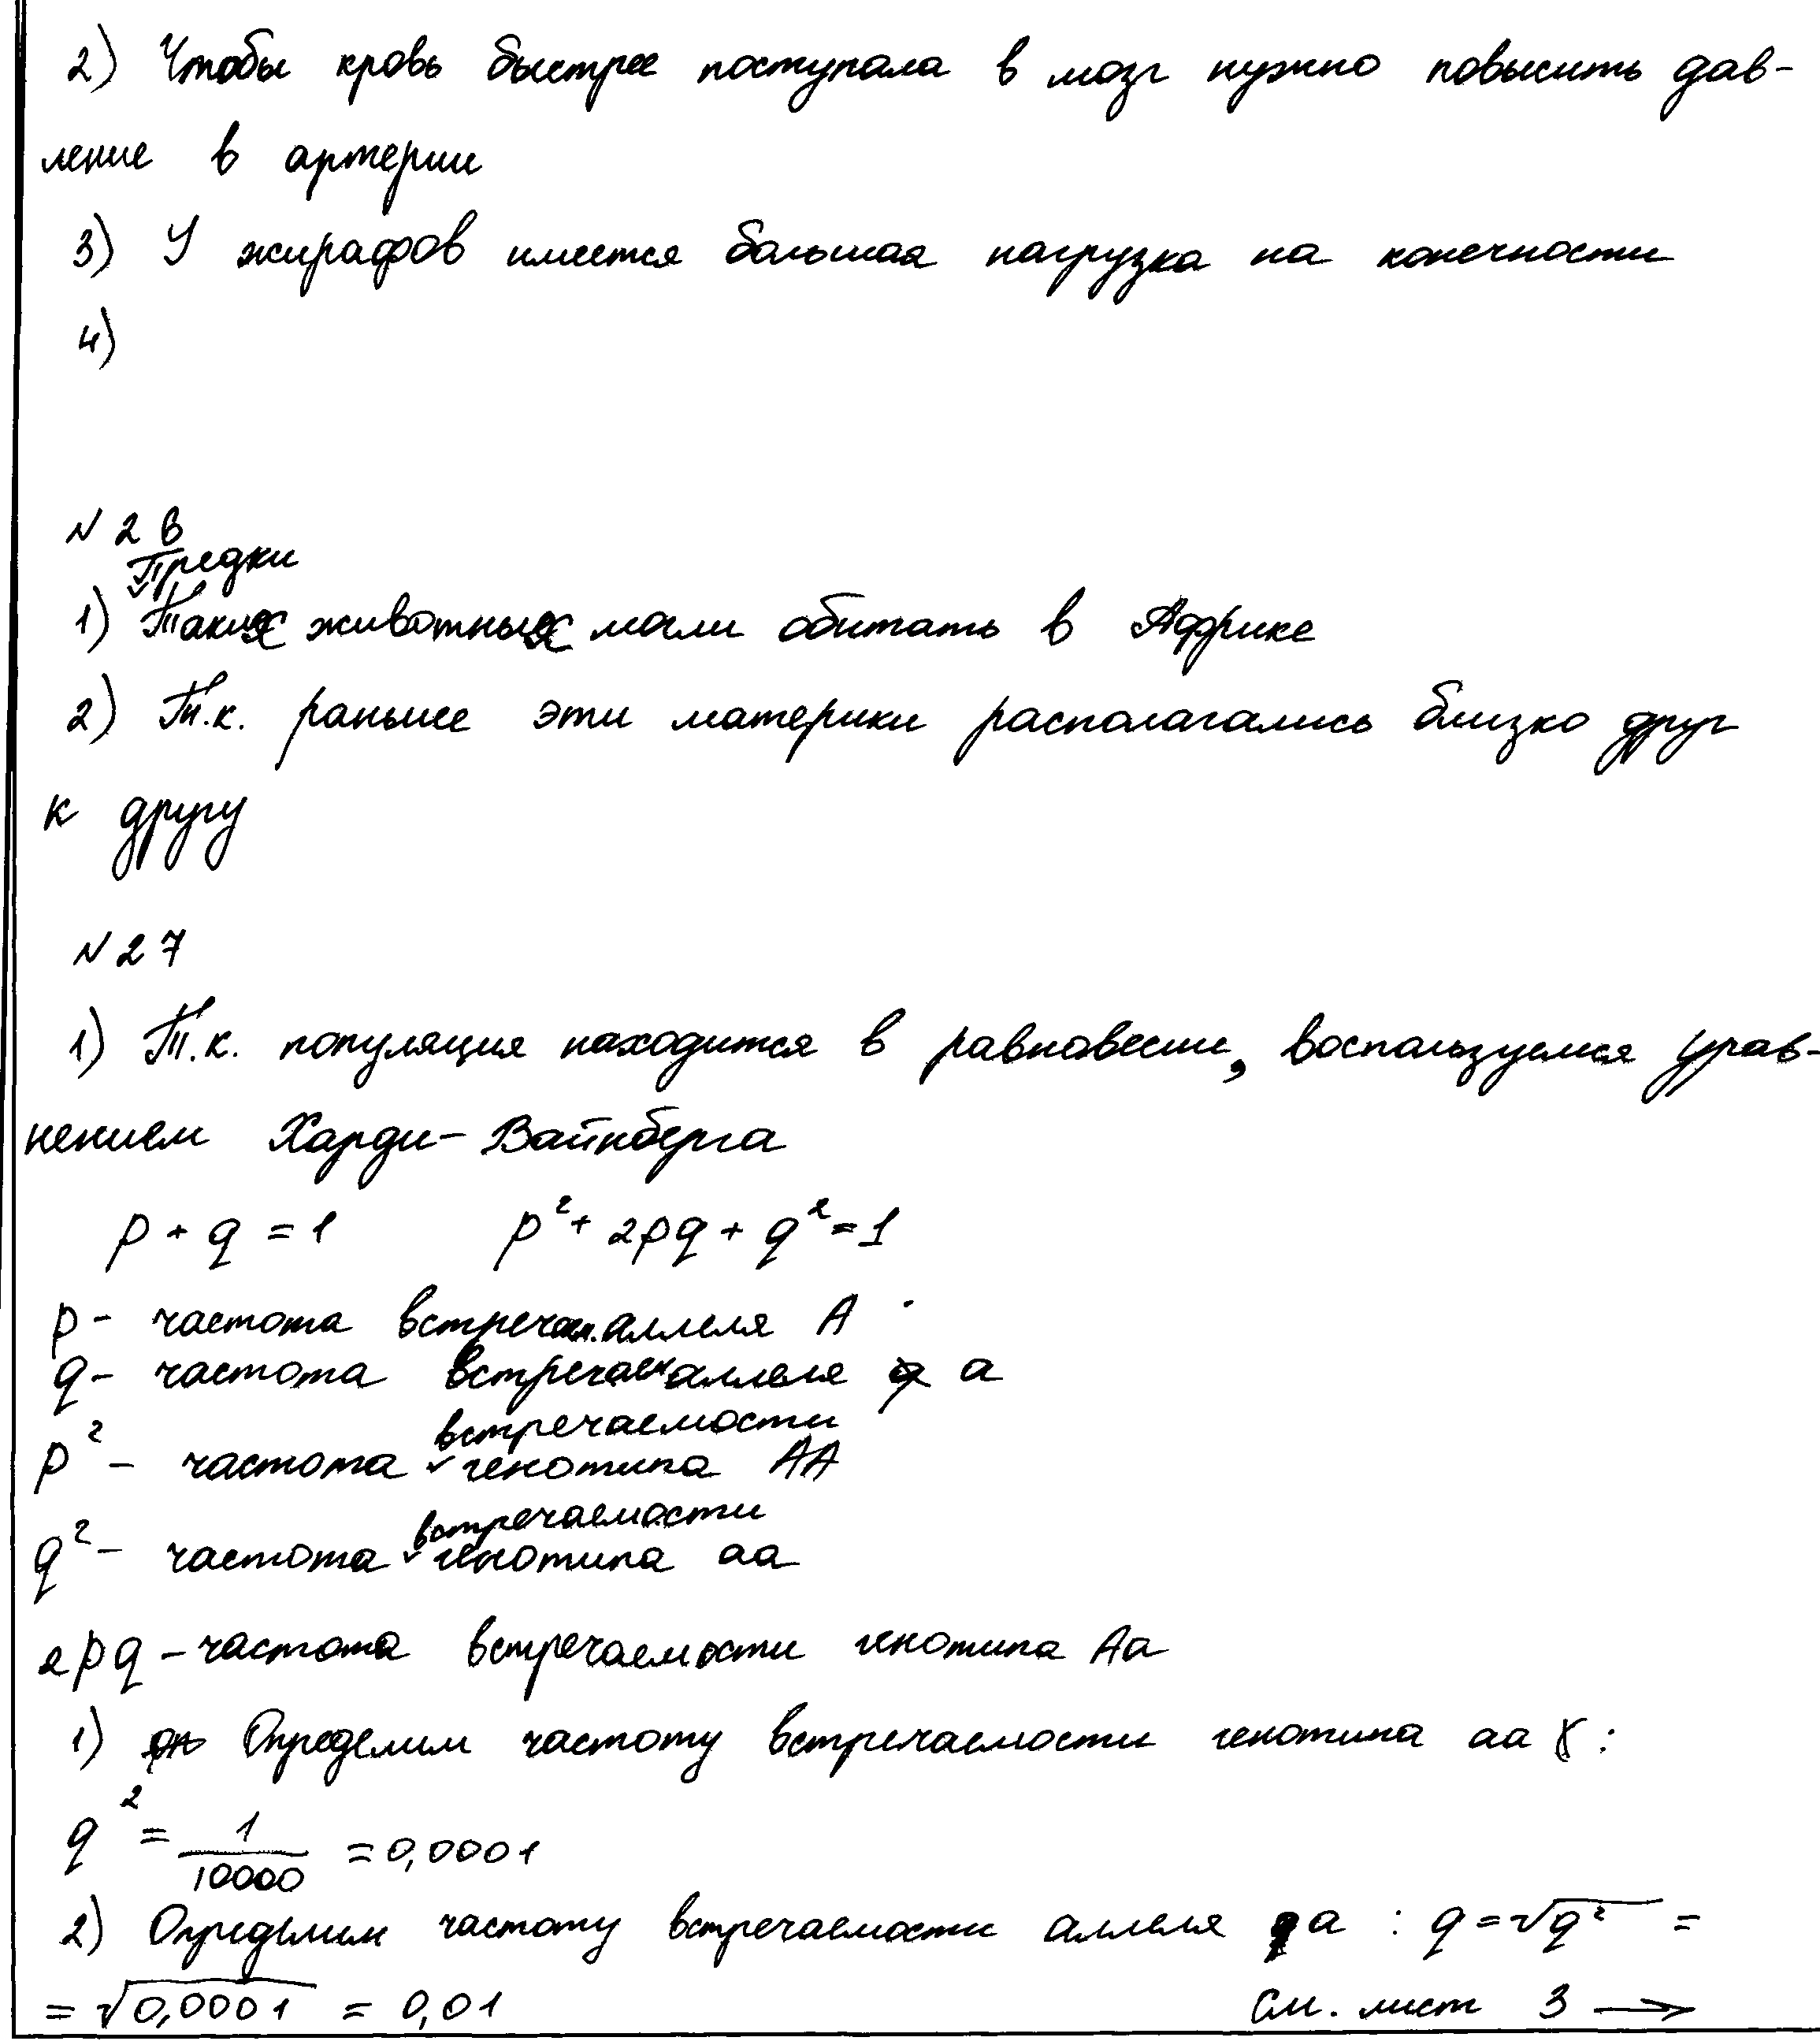 2) Чтобы кровь быстрее поступала в мозг нужно повысить дав-
ление в артерии
3) У жирафов имеется большая нагрузка на конечности
4)
№ 26
Предки
1) Таких животных могли обитать в Африке
2) Т.к. раньше эти материки располагались близко друг
к другу
№ 27
1) Т.к. популяция находится в равновесии, воспользуемся урав-
нением Харди-Вайнберга
p + q = 1 p² + 2pq + q² = 1
p - частота встречаем. аллеля A
q - частота встречаем аллеля a
встречаемости
p² - частота генотипа AA
встречаемости
q² - частота генотипа aa
2pq - частота встречаемости генотипа Aa
1) Определим частоту встречаемости генотипа aa :
q² = 1/10000 = 0,0001
2) Определим частоту встречаемости аллеля a : q = √q² =
= √0,0001 = 0,01 См. лист 3 →